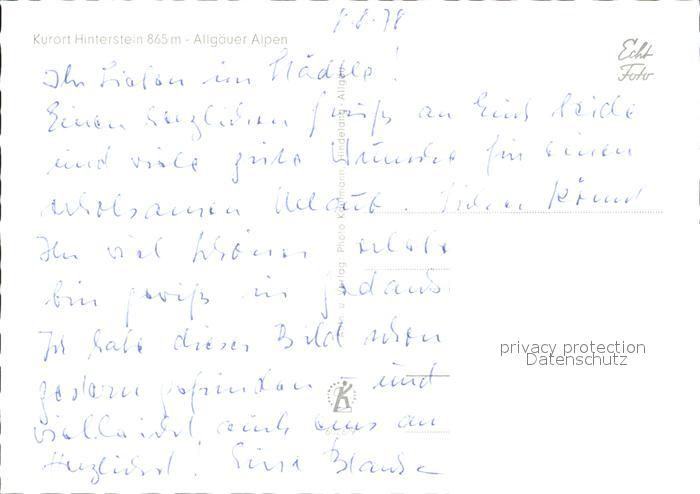 8.8.78
Kurort Hinterstein 865 m - Allgäuer Alpen
Echt
Foto
Ihr Lieben im Städtle!
Einen herzlichen Gruß an Euch beide
und viele gute Wünsche für einen
erholsamen Urlaub. Sicher könnt
Ihr viel Schönes erleben
bin gewiß in Gedanken
Ich habe dieses Bild schon
gestern gefunden - und
vielleicht auch eins an
Herzlichst! Eure Blanka
privacy protection
Datenschutz